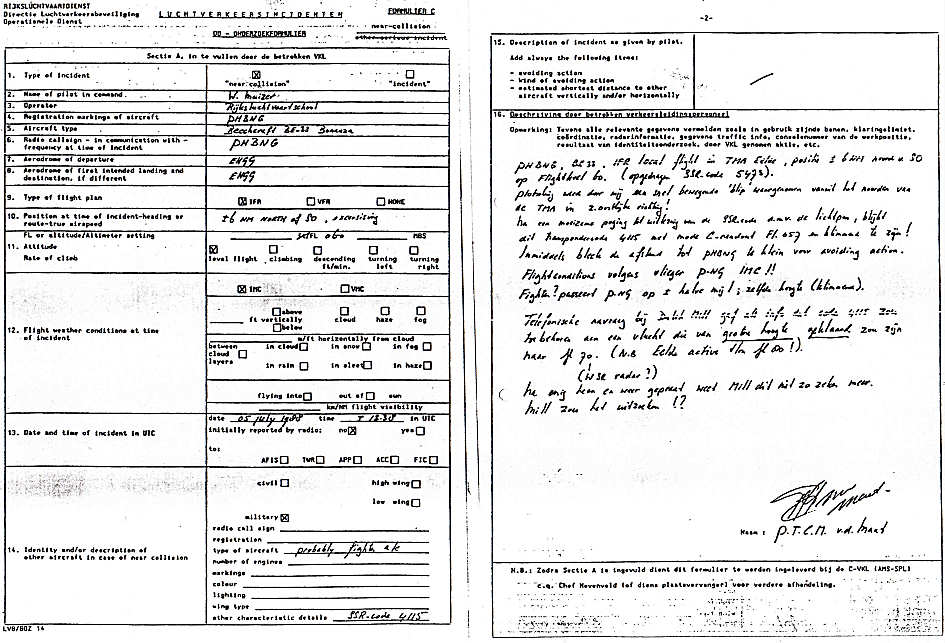 RIJKSLUCHTVAARTDIENST
Directie Luchtverkeersbeveiliging
Operationele Dienst
LUCHTVERKEERSINCIDENTEN
OD - ONDERZOEKFORMULIER
FORMULIER C
near-collision
other serious incident
Sectie A, in te vullen door de betrokken VKL
1. Type of incident
"near collision" "incident"
2. Name of pilot in command W. Muizer
3. Operator Rijksluchtvaartschool
4. Registration markings of aircraft PHBNG
5. Aircraft type Beechcraft Bonanza
6. Radio callsign - in communication with -
frequency at time of incident PHBNG
7. Aerodrome of departure EHGG
8. Aerodrome of first intended landing and
destination, if different EHGG
9. Type of flight plan IFR VFR NONE
10. Position at time of incident-heading or
route-true airspeed ±6 NM NORTH of SO, exercising
FL or altitude/Altimeter setting 060 MBS
11. Attitude
Rate of climb
level flight climbing descending turning turning
ft/min. left right
IMC VMC
12. Flight weather conditions at time
of incident
above
ft vertically cloud haze fog
below
m/ft horizontally from cloud
between in cloud in snow in fog
cloud
layers
in rain in sleet in haze
flying into out of sun
km/NM flight visibility
13. Date and time of incident in UTC
date 05 July 1988 time in UTC
initially reported by radio: no yes
to:
AFIS TWR APP ACC FIC
14. Identity and/or description of
other aircraft in case of near collision
civil high wing
low wing
military
radio call sign
registration
type of aircraft probably fighter a/c
number of engines
markings
colour
lighting
wing type
other characteristic details SSR-code 4115
LVB/60Z 14
-2-
15. Description of incident as given by pilot.
Add always the following items:
- avoiding action
- kind of avoiding action
- estimated shortest distance to other
aircraft vertically and/or horizontally
16. Beschrijving door betrokken verkeersleidingspersoneel
Opmerking: Tevens alle relevante gegevens vermelden zoals in gebruik zijnde banen, klaringslimiet,
coördinatie, radarinformatie, gegeven traffic info, consolenummer van de werkpositie,
resultaat van identiteitsonderzoek, door VKL genomen aktie, etc.
PHBNG, BE33, IFR local flight in TMA Eelde, positie ± 6 NM noord v. SO
op Flightlevel 60. (opgedragen SSR-code 5473).
Plotseling werd door mij een snel bewegende 'blip' waargenomen vanuit het noorden van
de TMA in z.oostelijke richting!
Na een moeizame poging tot uitlezing van de SSR code d.m.v. de lichtpen, blijkt
dit transpondercode 4115 met mode C-readout FL 057 en klimmend te zijn!
Inmiddels bleek de afstand tot PHBNG te klein voor avoiding action.
Flightconditions volgens vlieger P-NG IMC!!
Fighter? passeert P-NG op ± halve mijl; zelfde hoogte (klimmend).
Telefonische navraag bij Dutch Mill gaf als info dat code 4115 zou
toebehoren aan een vlucht die van grote hoogte gedaald zou zijn
naar fl 70. (N.B. Eelde active
(WSR radar?)
Na enig heen en weer gepraat weet Mill dit niet zo zeker meer.
Mill zou het uitzoeken!?
Naam: P.T.C.M. v.d. Maat
N.B.: Zodra Sectie A is ingevuld dient dit formulier te worden ingeleverd bij de C-VKL (AMS-SPL)
c.q. Chef Havenveld (of diens plaatsvervanger) voor verdere afhandeling.